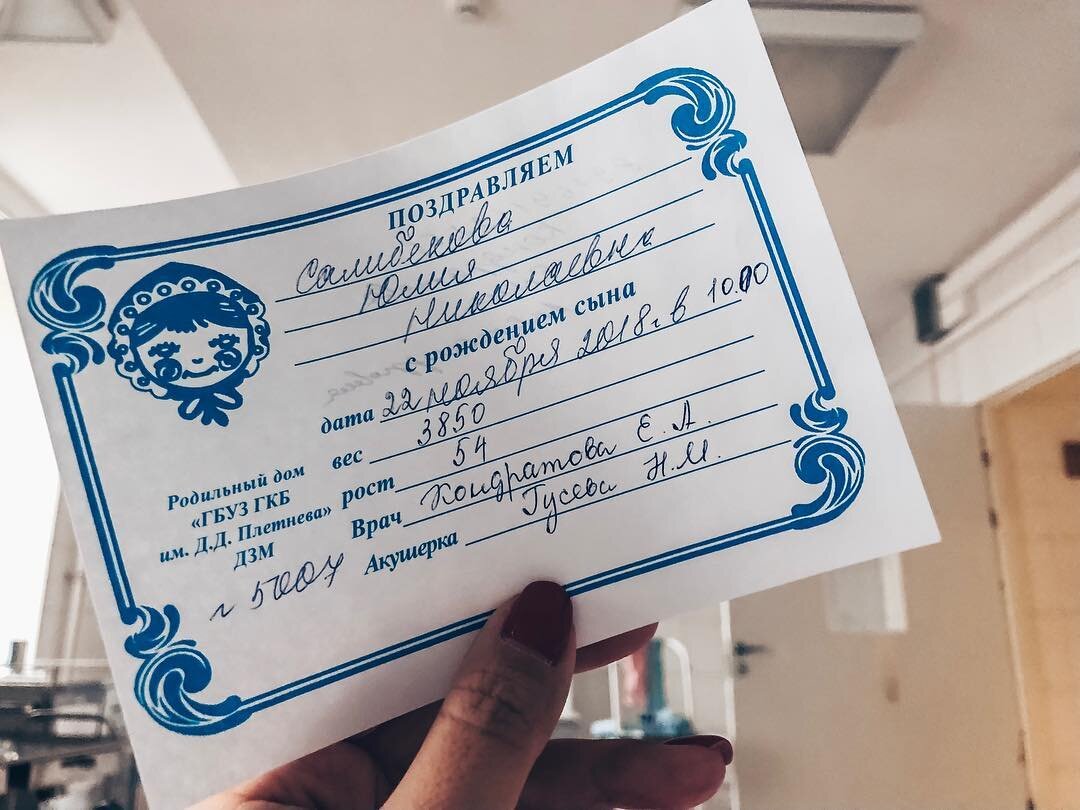 ПОЗДРАВЛЯЕМ
Салибекова
Юлия
Николаевна
с рождением сына
дата 22 ноября 2018г в 10.00
вес 3850
рост 54
Врач Кондратова Е.А.
Акушерка Гусева Н.М.
Родильный дом
«ГБУЗ ГКБ
им. Д.Д. Плетнева»
ДЗМ
5007